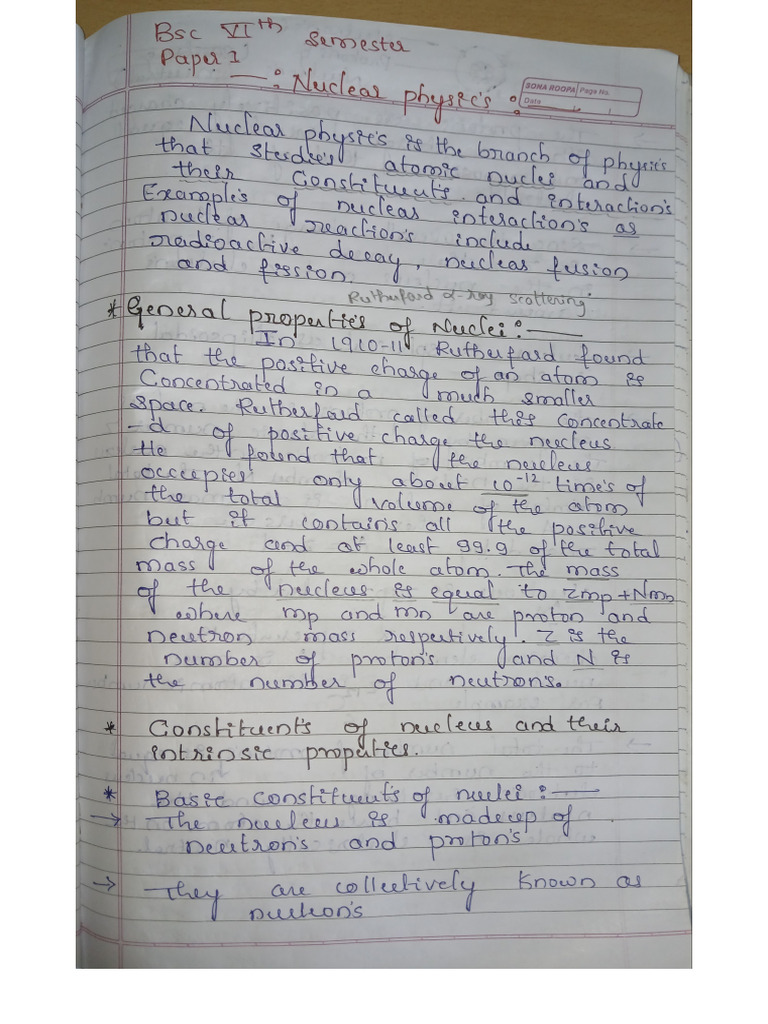 Bsc VIth Semester
Paper I
SONA ROOPA Page No.
Date
—: Nuclear physic's :
Nuclear physic's is the branch of physics
that studie's atomic nuclei and
their Constituent's and interaction's
Example's of nuclear interaction's as
nuclear reaction's include
radioactive decay, nuclear fusion
and fission.
Rutherford α-ray scattering
* General propertie's of Nuclei :—
In 1910-11 Rutherfard found
that the positive charge of an atom is
Concentrated in a much smaller
space. Rutherfard called this concentrate
-d of positive charge the necleus
He found that the nucleus
occcepies only about 10⁻¹² time's of
the total volume of the atom
but it contains all the positive
charge and at least 99.9 of the total
mass of the whole atom. The mass
of the nucleus is equal to Zmp+Nmn
where mp and mn are proton and
neutron mass respertively. Z is the
number of proton's and N is
the number of neutrons.
* Constituent's of nucleus and their
intrinsic properties.
* Basic constituent's of nuclei :—
→ The nucleus is madeup of
neutron's and proton's
→ They are collectively known as
nucleon's